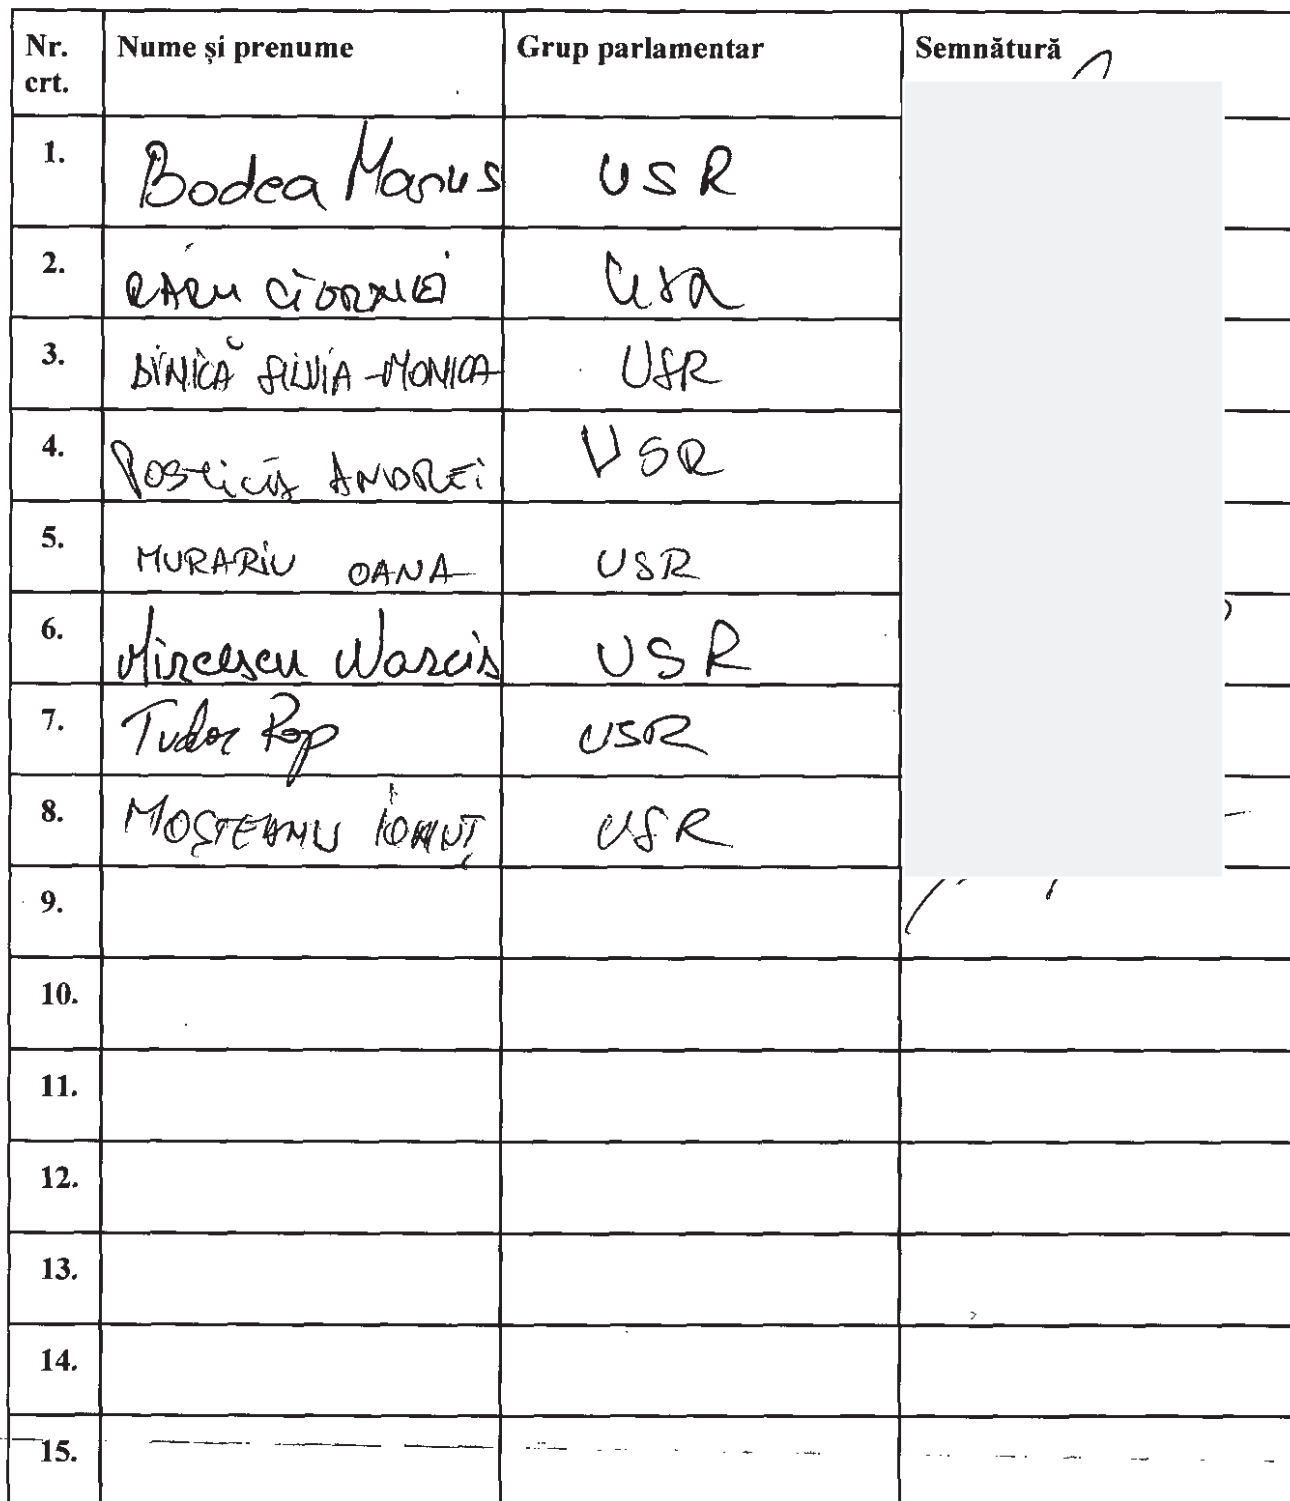 Nr. crt. Nume și prenume Grup parlamentar Semnătură
1. Bodea Marius USR
2. USR
3. DINICĂ SILVIA-MONICA USR
4. POSTICĂ ANDREI USR
5. MURARIU OANA USR
6. Mircescu Narcis USR
7. Tudor Pop USR
8. MOȘTEANU IONUȚ USR
9.
10.
11.
12.
13.
14.
15.